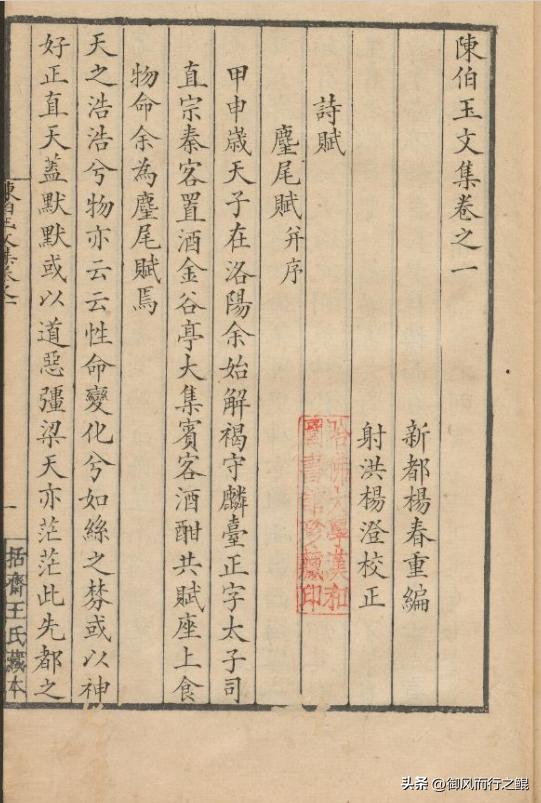 陳伯玉文集卷之一
新都楊春重編
射洪楊澄校正
詩賦
麈尾賦并序
甲申歲天子在洛陽余始解褐守麟臺正字太子司
直宗秦客置酒金谷亭大集賓客酒酣共賦座上食
物命余為麈尾賦焉
天之浩浩兮物亦云云性命變化兮如絲之棼或以神
好正直天蓋默默或以道惡彊梁天亦茫茫此先都之
陳伯玉文集卷之一
一
括齋王氏藏本
哈佛大學漢和
圖書館珍藏印
头条 @御风而行之鲲